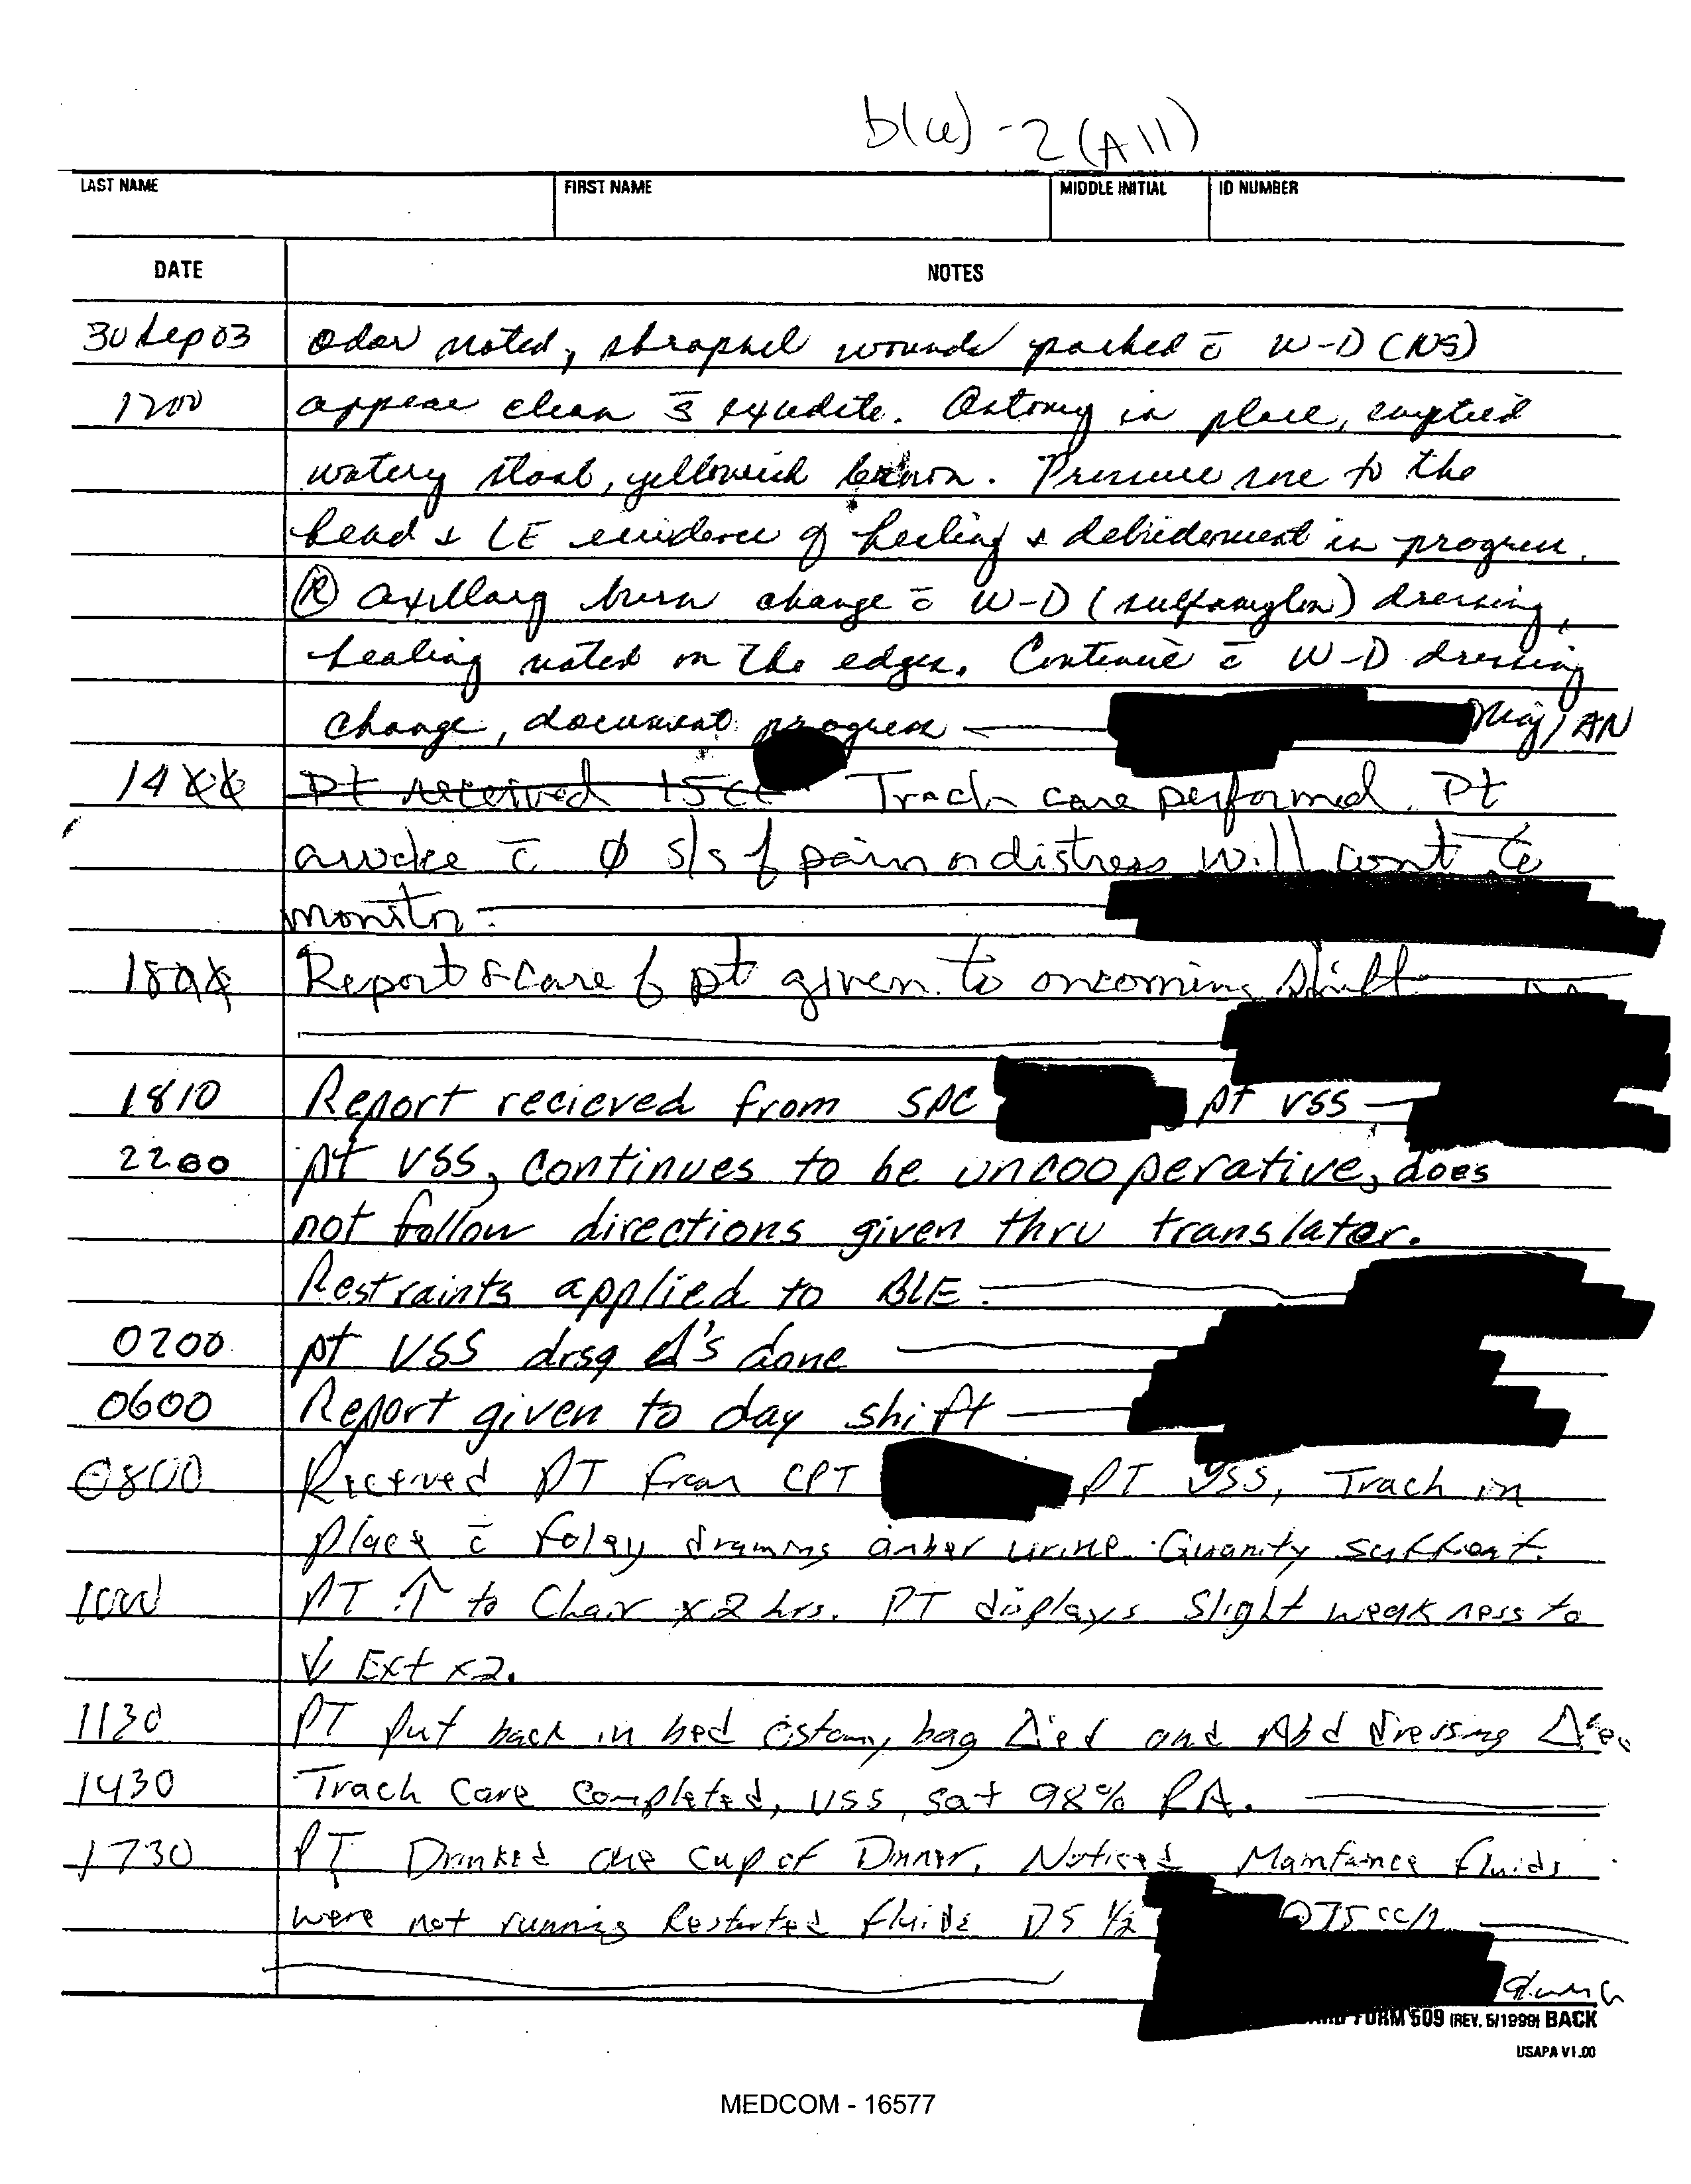 b(6)-2(All)
LAST NAME FIRST NAME MIDDLE INITIAL ID NUMBER
DATE NOTES
30 Sep 03 odor noted, shrapnel wounds packed c̄ W-D (NS)
1200 appear clean s̄ exudite. Ostomy in place, emptied
watery stool, yellowish brown. Pressure sore to the
head & LE evidence of healing & debridement in progress.
Ⓡ axillary burn change c̄ W-D (sulfamylon) dressing,
healing noted on the edges. Continue c̄ W-D dressing
change, document progress Maj, AN
14 Pt received 15cc Trach care performed. Pt
awake c̄ Ø s/s of pain or distress will cont to
monitor.
18 Report & care of pt given to oncoming shift
1810 Report recieved from SPC pt VSS
2200 pt VSS, continues to be uncooperative, does
not follow directions given thru translator.
Restraints applied to BLE.
0200 pt VSS drsg done
0600 Report given to day shift
0800 Received PT from CPT PT VSS, Trach in
place c̄ foley draining amber urine Quanity sufficent.
1000 PT ↑ to Chair x2 hrs. PT displays Slight weakness to
↓ Ext x2.
1130 PT put back in bed ostomy bag Δ'ed and Abd dressing Δ'ed
1430 Trach Care Completed, VSS, sat 98% RA.
1730 PT Drinked one cup of Dinner, Noticed Maintance fluids
were not running Restarted fluids D5 1/2 @75cc/
FORM 509 (REV. 5/1999) BACK
USAPA V1.00
MEDCOM - 16577